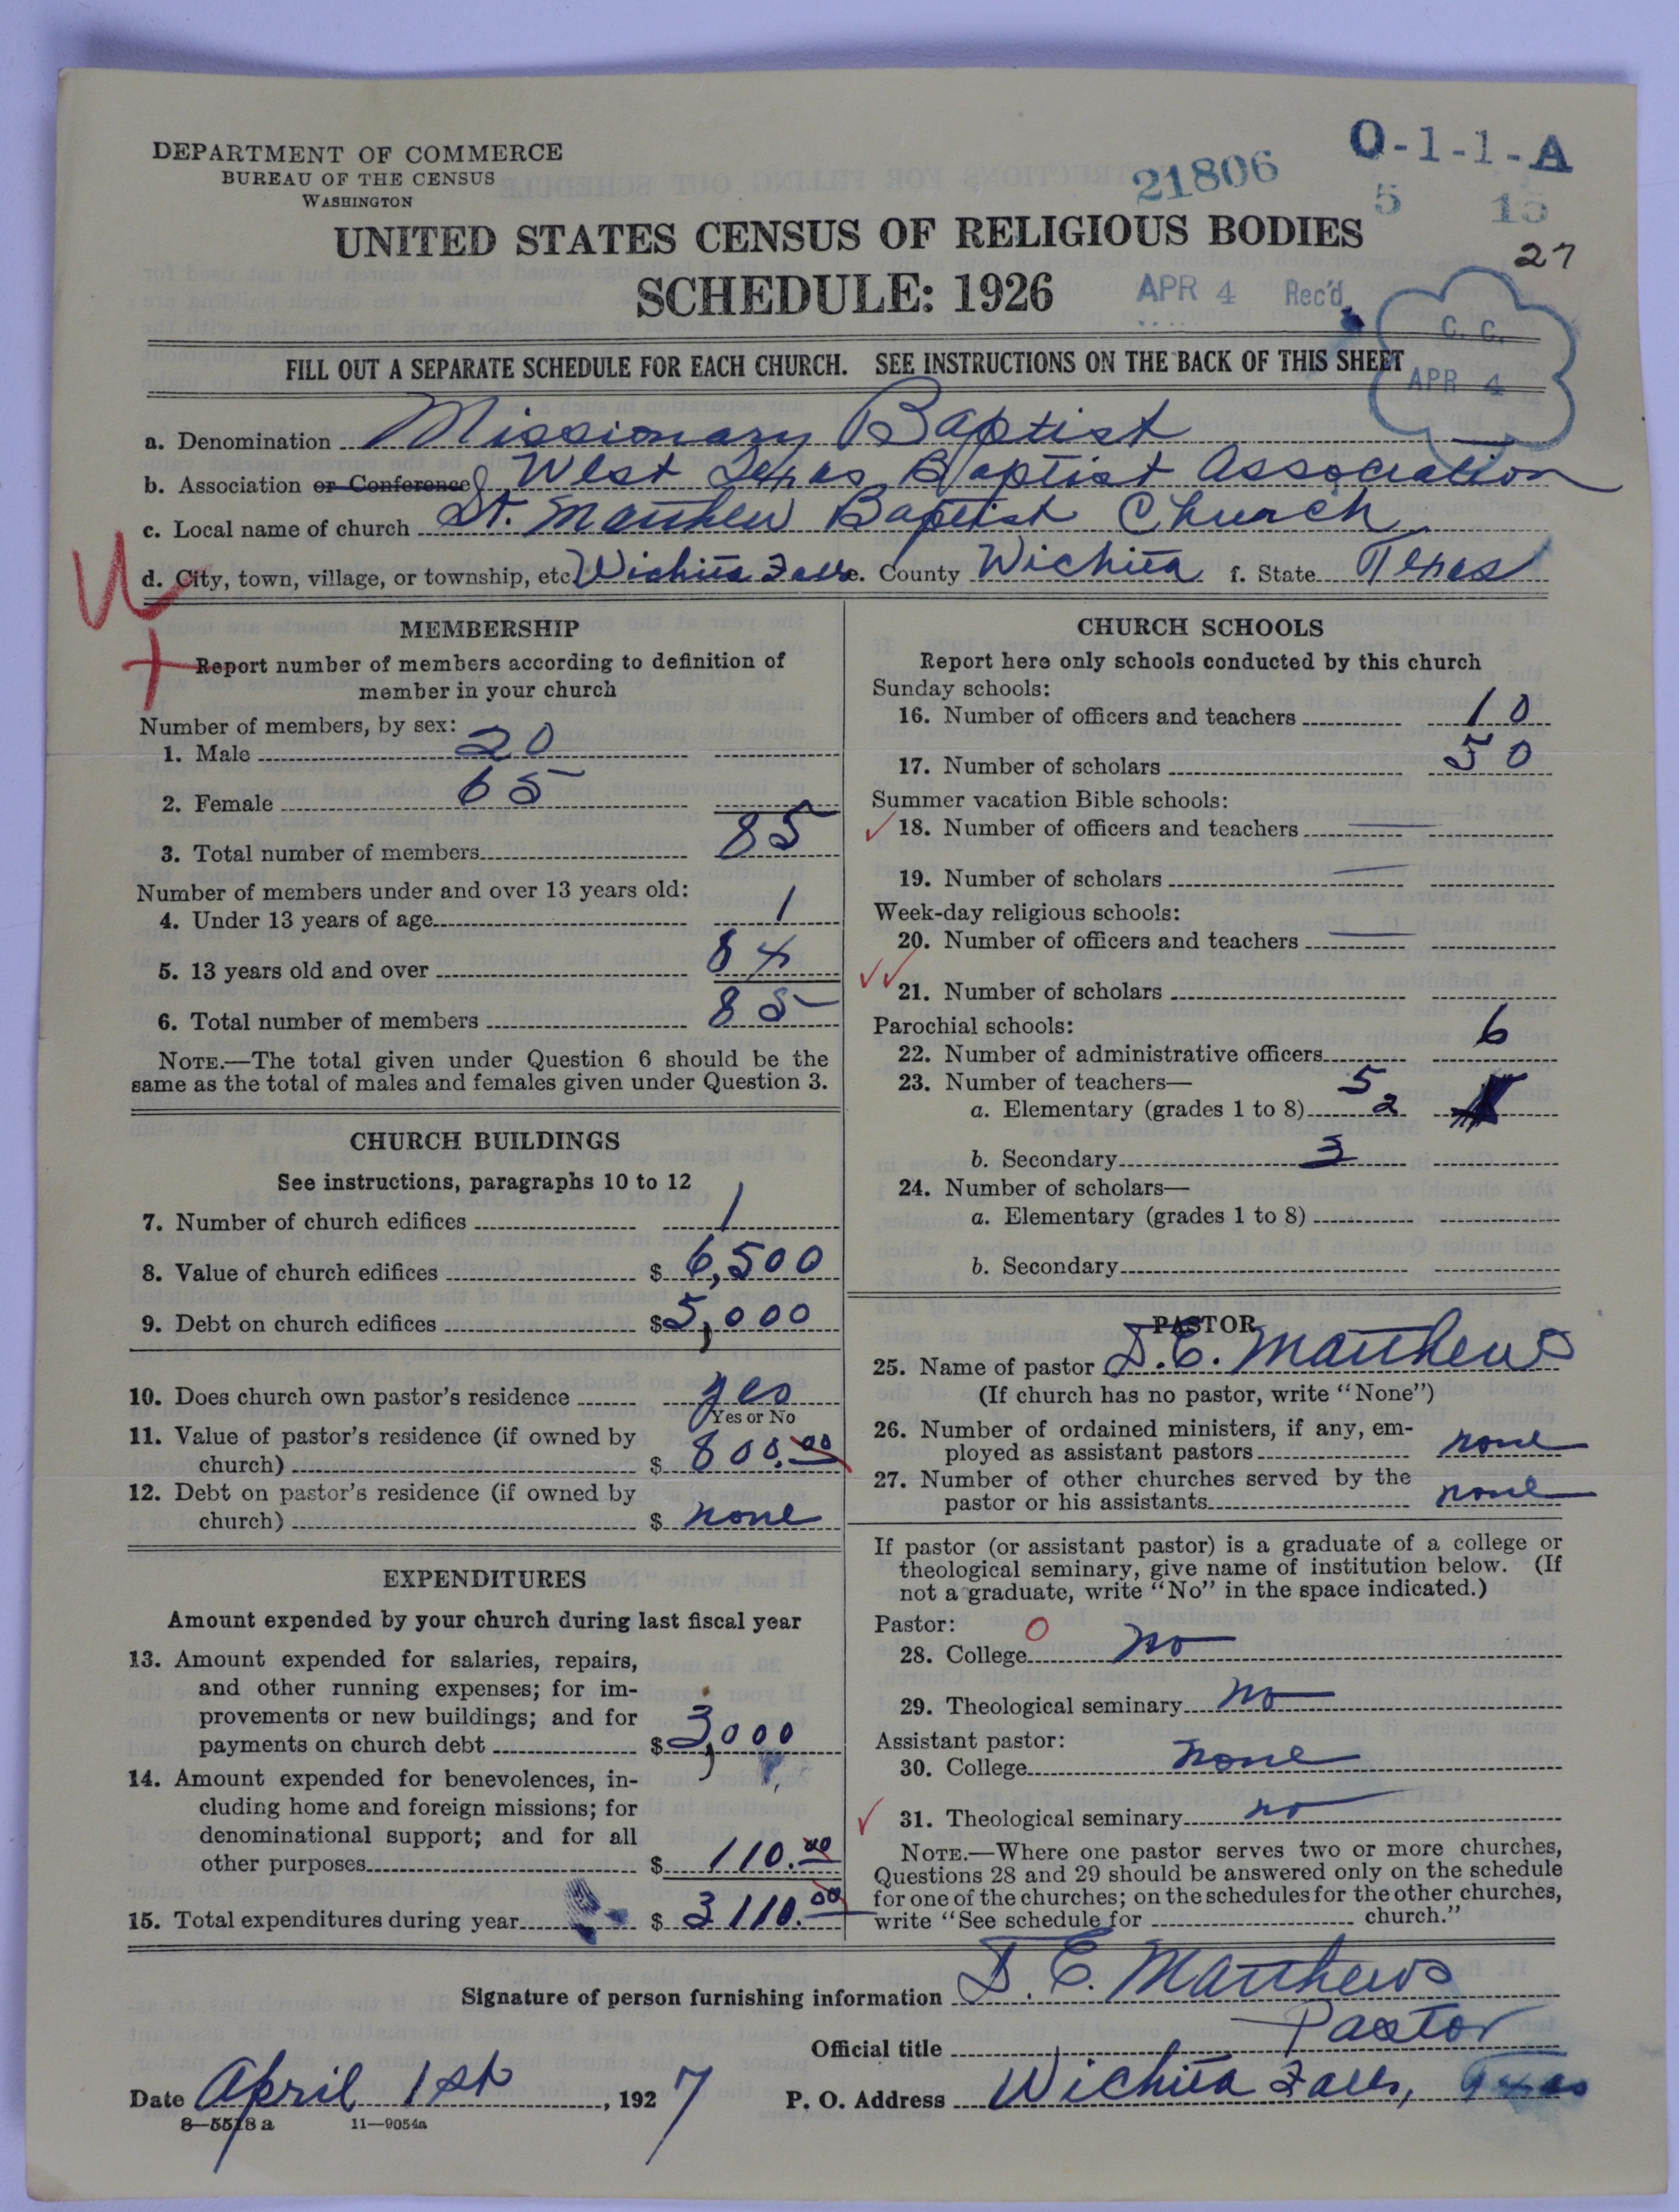 DEPARTMENT OF COMMERCE
BUREAU OF THE CENSUS
WASHINGTON
21806
O-1-1-A
5 15
27
UNITED STATES CENSUS OF RELIGIOUS BODIES
SCHEDULE: 1926
APR 4 Rec'd
C. C.
APR 4
FILL OUT A SEPARATE SCHEDULE FOR EACH CHURCH. SEE INSTRUCTIONS ON THE BACK OF THIS SHEET
a. Denomination Missionary Baptist
b. Association or Conference West Texas Baptist Association
c. Local name of church St. Matthew Baptist Church
d. City, town, village, or township, etc Wichita Falls e. County Wichita f. State Texas
MEMBERSHIP
Report number of members according to definition of
member in your church
Number of members, by sex:
1. Male 20
2. Female 65
3. Total number of members 85
Number of members under and over 13 years old:
4. Under 13 years of age 1
5. 13 years old and over 84
6. Total number of members 85
NOTE.—The total given under Question 6 should be the
same as the total of males and females given under Question 3.
CHURCH BUILDINGS
See instructions, paragraphs 10 to 12
7. Number of church edifices 1
8. Value of church edifices $ 6,500
9. Debt on church edifices $ 5,000
10. Does church own pastor's residence yes
Yes or No
11. Value of pastor's residence (if owned by
church) $ 800.00
12. Debt on pastor's residence (if owned by
church) $ none
EXPENDITURES
Amount expended by your church during last fiscal year
13. Amount expended for salaries, repairs,
and other running expenses; for im-
provements or new buildings; and for
payments on church debt $ 3,000
14. Amount expended for benevolences, in-
cluding home and foreign missions; for
denominational support; and for all
other purposes $ 110.00
15. Total expenditures during year $ 3110.00
CHURCH SCHOOLS
Report here only schools conducted by this church
Sunday schools:
16. Number of officers and teachers 10
17. Number of scholars 50
Summer vacation Bible schools:
18. Number of officers and teachers
19. Number of scholars
Week-day religious schools:
20. Number of officers and teachers
21. Number of scholars
Parochial schools:
22. Number of administrative officers 6
23. Number of teachers— 5
a. Elementary (grades 1 to 8) 2
b. Secondary 3
24. Number of scholars—
a. Elementary (grades 1 to 8)
b. Secondary
PASTOR
25. Name of pastor D. E. Matthews
(If church has no pastor, write "None")
26. Number of ordained ministers, if any, em-
ployed as assistant pastors none
27. Number of other churches served by the
pastor or his assistants none
If pastor (or assistant pastor) is a graduate of a college or
theological seminary, give name of institution below. (If
not a graduate, write "No" in the space indicated.)
Pastor: 0
28. College no
29. Theological seminary no
Assistant pastor:
30. College none
31. Theological seminary no
NOTE.—Where one pastor serves two or more churches,
Questions 28 and 29 should be answered only on the schedule
for one of the churches; on the schedules for the other churches,
write "See schedule for church."
Signature of person furnishing information D. E. Matthews
Official title Pastor
Date April 1st, 1927 P. O. Address Wichita Falls, Texas
8-5518 a 11-9054a